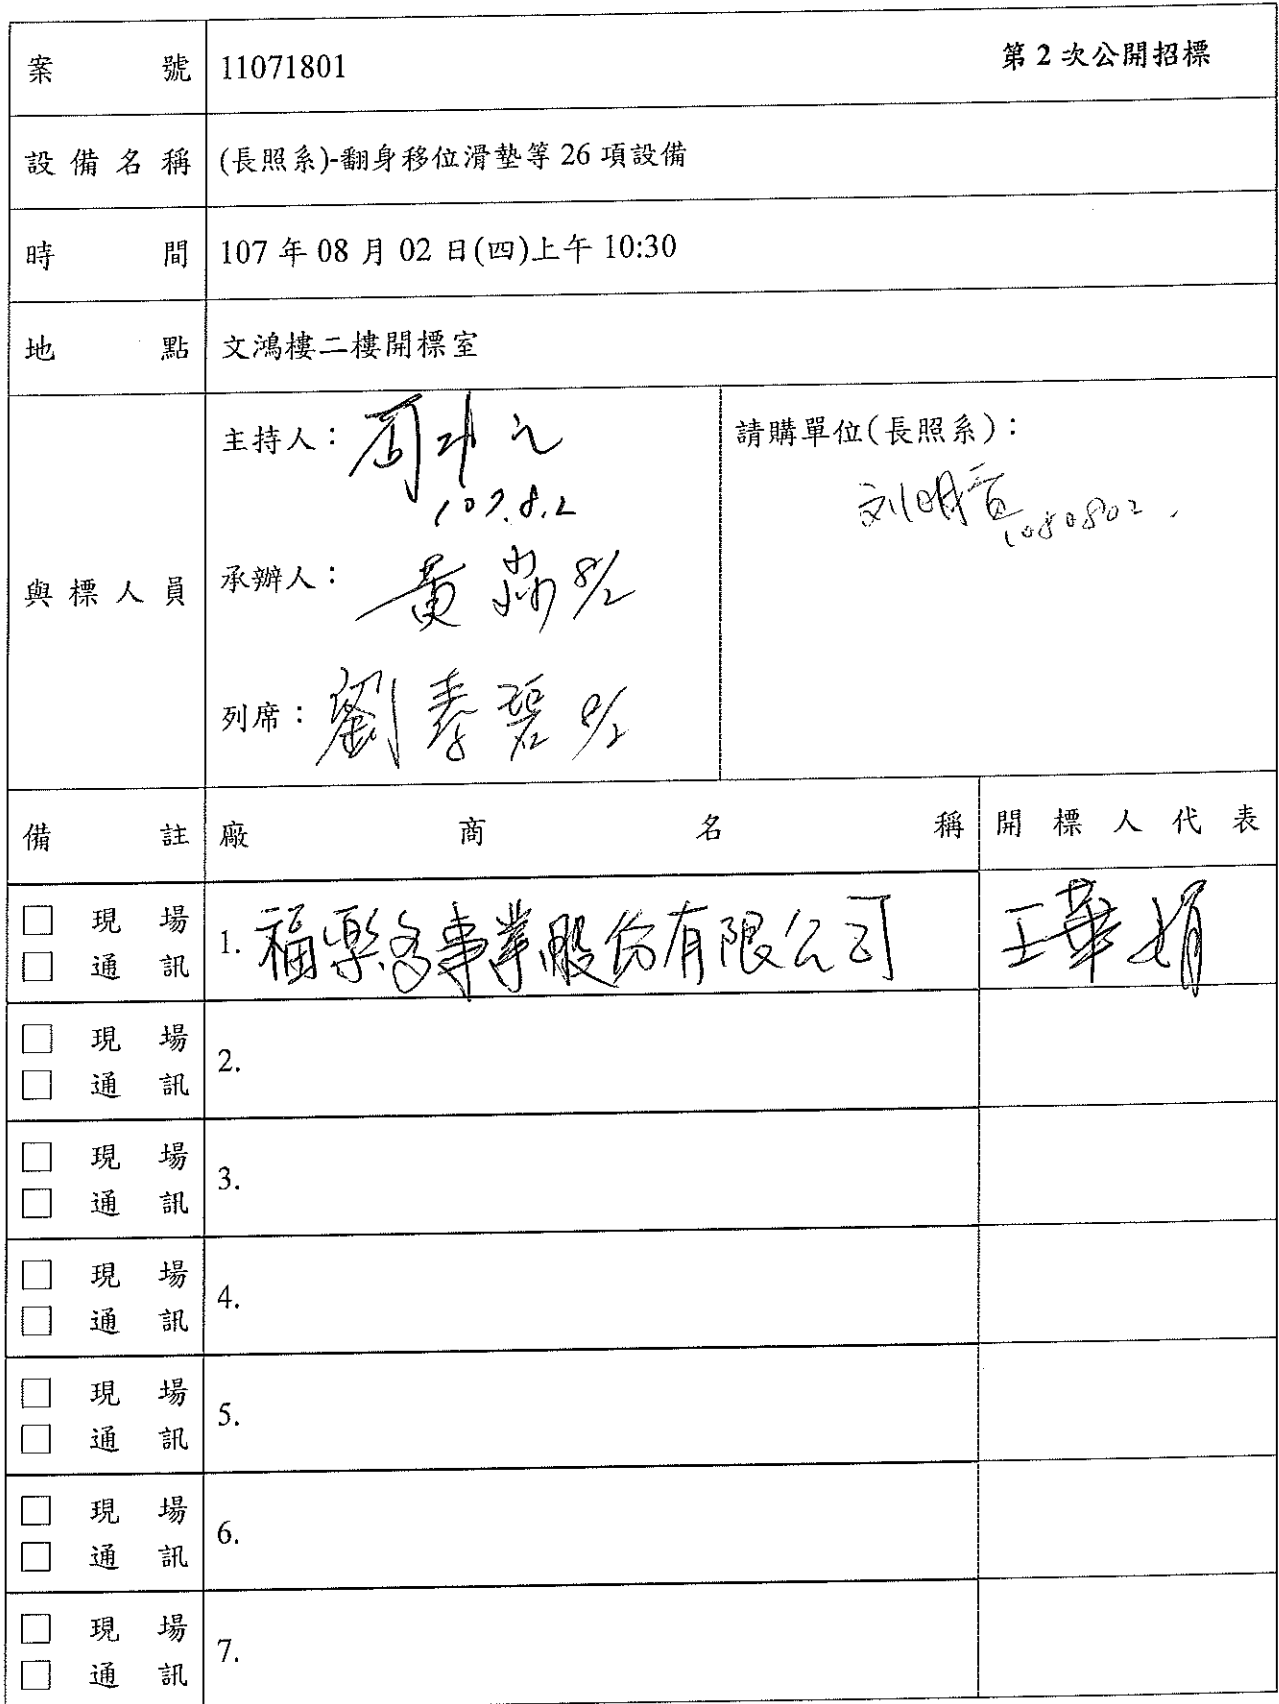 案號 11071801 第2次公開招標
設備名稱 (長照系)-翻身移位滑墊等26項設備
時間 107年08月02日(四)上午10:30
地點 文鴻樓二樓開標室
與標人員
主持人：
107.8.2
承辦人：黃 8/2
列席：劉春碧 8/2
請購單位(長照系)：
刘明 1080802
備註 廠商名稱 開標人代表
□ 現場
□ 通訊
1. 福樂多事業股份有限公司 王華娟
□ 現場
□ 通訊
2.
□ 現場
□ 通訊
3.
□ 現場
□ 通訊
4.
□ 現場
□ 通訊
5.
□ 現場
□ 通訊
6.
□ 現場
□ 通訊
7.